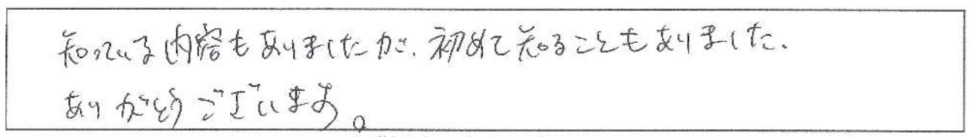 知っている内容もありましたが、初めて知ることもありました、
ありがとうございます。